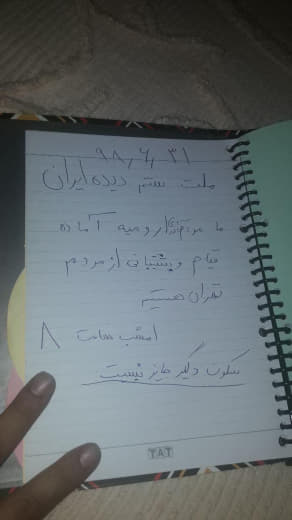 ۹۸/۶/۳۱
ملت ستم دیده ایران
ما مردم ارومیه آماده
قیام و پشتیبانی از مردم
تهران هستیم
امشب ساعت ۸
سکوت دیگر جایز نیست
TAT